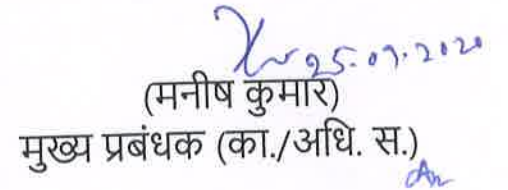 25.09.2020
(मनीष कुमार)
मुख्य प्रबंधक (का./अधि. स.)